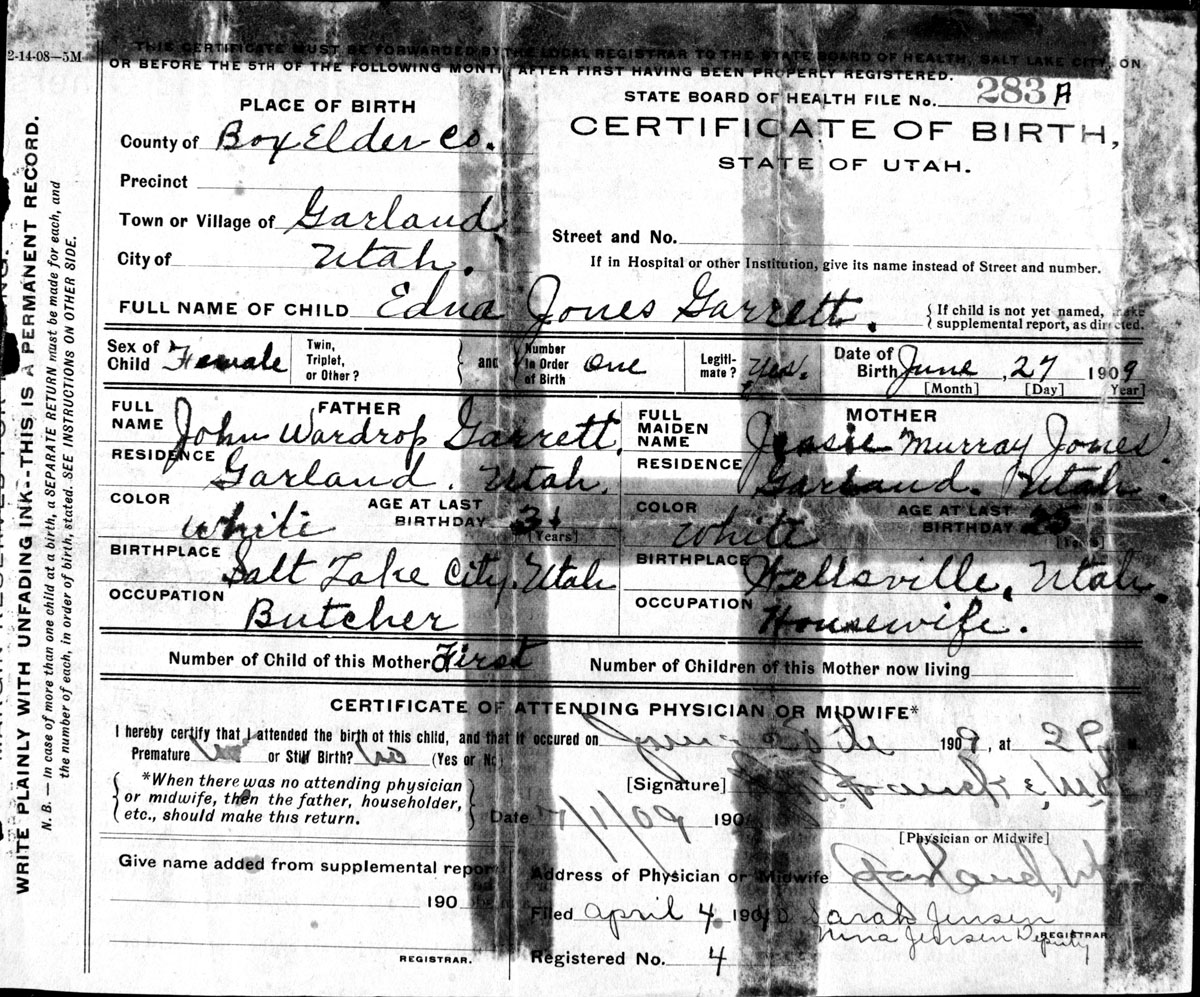 2-14-08—5M
THIS CERTIFICATE MUST BE FORWARDED BY THE LOCAL REGISTRAR TO THE STATE BOARD OF HEALTH, SALT LAKE CITY, ON
OR BEFORE THE 5TH OF THE FOLLOWING MONTH AFTER FIRST HAVING BEEN PROPERLY REGISTERED.
STATE BOARD OF HEALTH FILE No. 283 A
CERTIFICATE OF BIRTH,
STATE OF UTAH.
PLACE OF BIRTH
County of Box Elder Co.
Precinct
Town or Village of Garland
City of Utah.
Street and No.
If in Hospital or other Institution, give its name instead of Street and number.
FULL NAME OF CHILD Edna Jones Garrett.
{If child is not yet named, make
supplemental report, as directed.
Sex of Child Female
Twin, Triplet, or Other?
and
Number in Order of Birth One
Legiti- mate? Yes.
Date of Birth June, 27 1909
[Month] [Day] Year]
FATHER
FULL NAME John Wardrop Garrett.
RESIDENCE Garland. Utah.
COLOR White
AGE AT LAST BIRTHDAY 31 [Years]
BIRTHPLACE Salt Lake City, Utah
OCCUPATION Butcher
MOTHER
FULL MAIDEN NAME Jessie Murray Jones.
RESIDENCE Garland. Utah.
COLOR White
AGE AT LAST BIRTHDAY 25
BIRTHPLACE Wellsville, Utah.
OCCUPATION Housewife.
Number of Child of this Mother First
Number of Children of this Mother now living
CERTIFICATE OF ATTENDING PHYSICIAN OR MIDWIFE*
I hereby certify that I attended the birth of this child, and that it occured on 1909, at 2 P. M.
Premature No or Still Birth? No (Yes or No)
{*When there was no attending physician
or midwife, then the father, householder,
etc., should make this return.}
[Signature]
Date 7/1/09 190
[Physician or Midwife]
Give name added from supplemental report
190
REGISTRAR.
Address of Physician or Midwife Garland, Ut
Filed April 4 190 Sarah Jensen
Nina Jensen Deputy REGISTRAR.
Registered No. 4
WRITE PLAINLY WITH UNFADING INK--THIS IS A PERMANENT RECORD.
N. B. — In case of more than one child at a birth, a SEPARATE RETURN must be made for each, and
the number of each, in order of birth, stated. SEE INSTRUCTIONS ON OTHER SIDE.